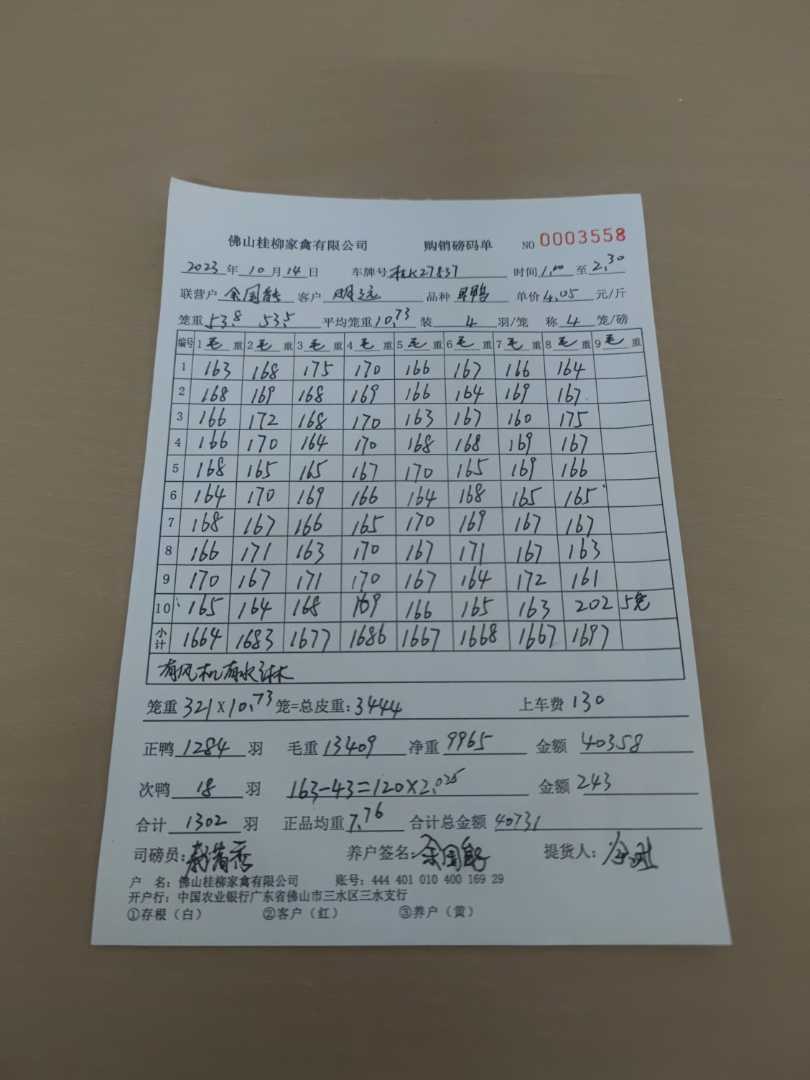 佛山桂柳家禽有限公司 购销磅码单 NO 0003558
2023 年 10 月 14 日 车牌号 桂K27837 时间 1.00 至 2.30
联营户 余国 客户 明远 品种 鸭 单价 4.05 元/斤
笼重 53.8 53.5 平均笼重 10.73 装 4 羽/笼 称 4 笼/磅
编号 1 毛 重 2 毛 重 3 毛 重 4 毛 重 5 毛 重 6 毛 重 7 毛 重 8 毛 重 9 毛 重
1 163 168 175 170 166 167 166 164
2 168 169 168 169 166 164 169 167
3 166 172 168 170 163 167 160 175
4 166 170 164 170 168 168 169 167
5 168 165 165 167 170 165 169 166
6 164 170 169 166 164 168 165 165
7 168 167 166 165 170 169 167 167
8 166 171 163 170 167 171 167 163
9 170 167 171 170 167 164 172 161
10 165 164 168 169 166 165 163 202 5笼
小计 1664 1683 1677 1686 1667 1668 1667 1697
有风机有水淋
笼重 321 X 10.73 笼=总皮重: 3444 上车费 130
正鸭 1284 羽 毛重 13409 净重 9965 金额 40358
次鸭 18 羽 163-43=120×2.025 金额 243
合计 1302 羽 正品均重 7.76 合计总金额 40731
司磅员: 养户签名: 余国 提货人:
户 名: 佛山桂柳家禽有限公司 账号: 444 401 010 400 169 29
开户行: 中国农业银行广东省佛山市三水区三水支行
①存根（白） ②客户（红） ③养户（黄）